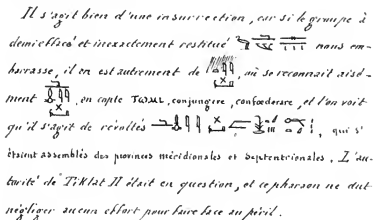 Il s'agit bien d'une insurrection, car si le groupe à
demi effacé et inexactement restitué nous em-
barrasse, il en est autrement de , où se reconnait aisé-
ment , en copte ⲧⲱⲙⲓ, conjungere, confœderare, et l'on voit
qu'il s'agit de révoltés , qui s'é-
taient assemblés des provinces méridionales et septentrionales. L'au-
torité de Tiklat II était en question, et ce pharaon ne dut
négliger aucun effort pour faire face au péril.